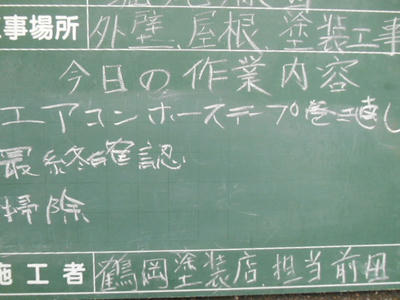 事場所 外壁、屋根塗装工事
今日の作業内容
エアコンホーステープ巻き直し
最終確認
掃除
施工者 鶴岡塗装店、担当前田